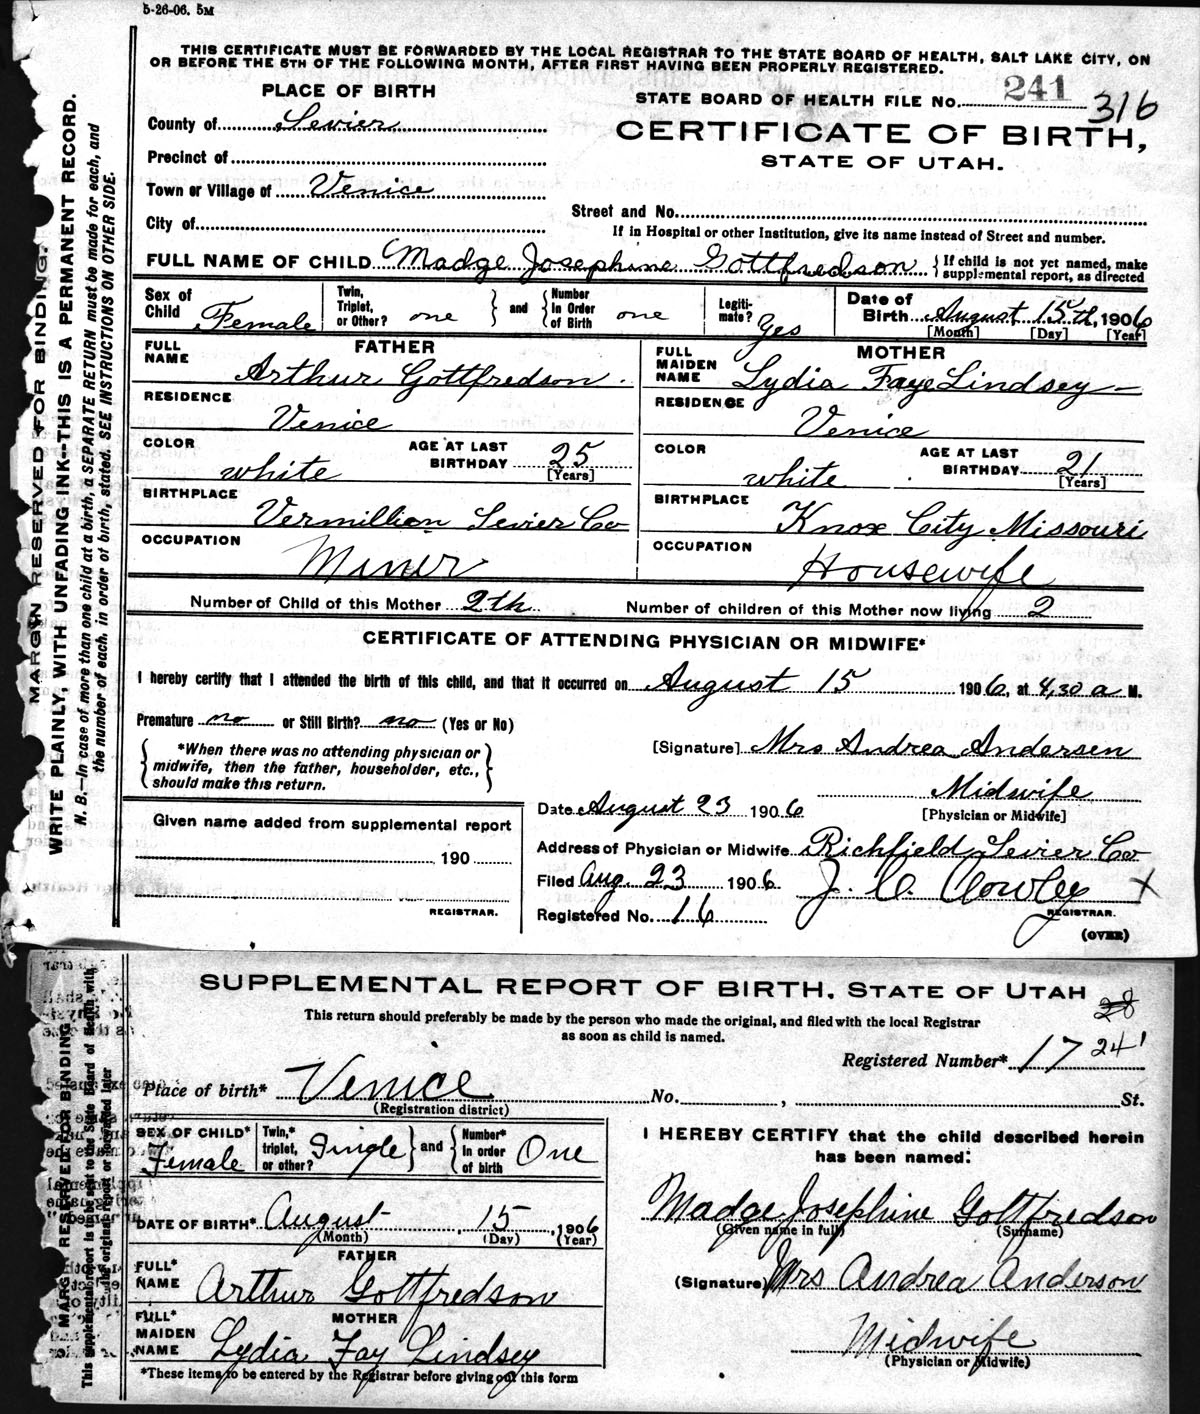 5-26-06. 5M
THIS CERTIFICATE MUST BE FORWARDED BY THE LOCAL REGISTRAR TO THE STATE BOARD OF HEALTH, SALT LAKE CITY, ON
OR BEFORE THE 5TH OF THE FOLLOWING MONTH, AFTER FIRST HAVING BEEN PROPERLY REGISTERED.
MARGIN RESERVED FOR BINDING.
WRITE PLAINLY, WITH UNFADING INK--THIS IS A PERMANENT RECORD.
N. B.—In case of more than one child at a birth, a SEPARATE RETURN must be made for each, and
the number of each, in order of birth, stated. SEE INSTRUCTIONS ON OTHER SIDE.
PLACE OF BIRTH
STATE BOARD OF HEALTH FILE NO. 241 316
County of Sevier
CERTIFICATE OF BIRTH,
STATE OF UTAH.
Precinct of
Town or Village of Venice
Street and No.
City of
If in Hospital or other Institution, give its name instead of Street and number.
FULL NAME OF CHILD Madge Josephine Gottfredson { If child is not yet named, make
supplemental report, as directed
Sex of Child Female
Twin, Triplet, or Other? one } and { Number In Order of Birth one
Legiti-mate? Yes
Date of Birth August 15th, 1906
[Month] [Day] [Year]
FATHER
FULL NAME Arthur Gottfredson
MOTHER
FULL MAIDEN NAME Lydia Faye Lindsey
RESIDENCE Venice
RESIDENCE Venice
COLOR white AGE AT LAST BIRTHDAY 25 [Years]
COLOR white AGE AT LAST BIRTHDAY 21 [Years]
BIRTHPLACE Vermillion Sevier Co
BIRTHPLACE Knox City Missouri
OCCUPATION Miner
OCCUPATION Housewife
Number of Child of this Mother 2th Number of children of this Mother now living 2
CERTIFICATE OF ATTENDING PHYSICIAN OR MIDWIFE*
I hereby certify that I attended the birth of this child, and that it occurred on August 15 1906, at 4,30 a M.
Premature no or Still Birth? no (Yes or No)
{ *When there was no attending physician or
midwife, then the father, householder, etc.,
should make this return. }
[Signature] Mrs Andrea Andersen
Midwife
[Physician or Midwife]
Date August 23 1906
Given name added from supplemental report
190
REGISTRAR.
Address of Physician or Midwife Richfield Sevier Co
Filed Aug. 23 1906 J. C. Cowley X
REGISTRAR.
Registered No. 16
(OVER)
SUPPLEMENTAL REPORT OF BIRTH, STATE OF UTAH
28
This return should preferably be made by the person who made the original, and filed with the local Registrar
as soon as child is named.
Registered Number* 17 241
MARGIN RESERVED FOR BINDING
This supplemental report is to be sent to the State Board of Health with
the original report or forwarded later
Place of birth* Venice No. , St.
(Registration district)
SEX OF CHILD* Female
Twin,* triplet, or other? Single } and { Number* in order of birth One
I HEREBY CERTIFY that the child described herein
has been named:
Madge Josephine Gottfredson
(Given name in full) (Surname)
DATE OF BIRTH* August 15, 1906
(Month) (Day) (Year)
FATHER
FULL* NAME Arthur Gottfredson
(Signature) Mrs Andrea Anderson
MOTHER
FULL* MAIDEN NAME Lydia Fay Lindsey
Midwife
(Physician or Midwife)
*These items to be entered by the Registrar before giving out this form